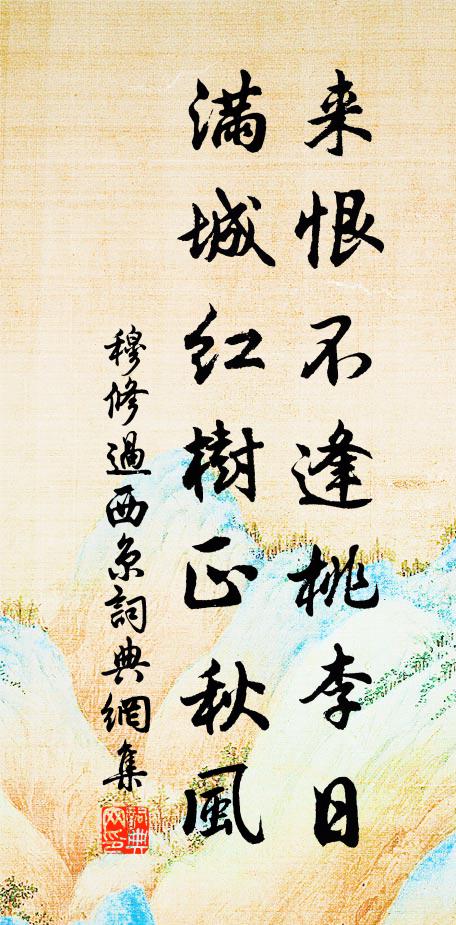 来恨不逢桃李日
滿城紅樹正秋風
穆修過西京詞典網集
詞典
网印